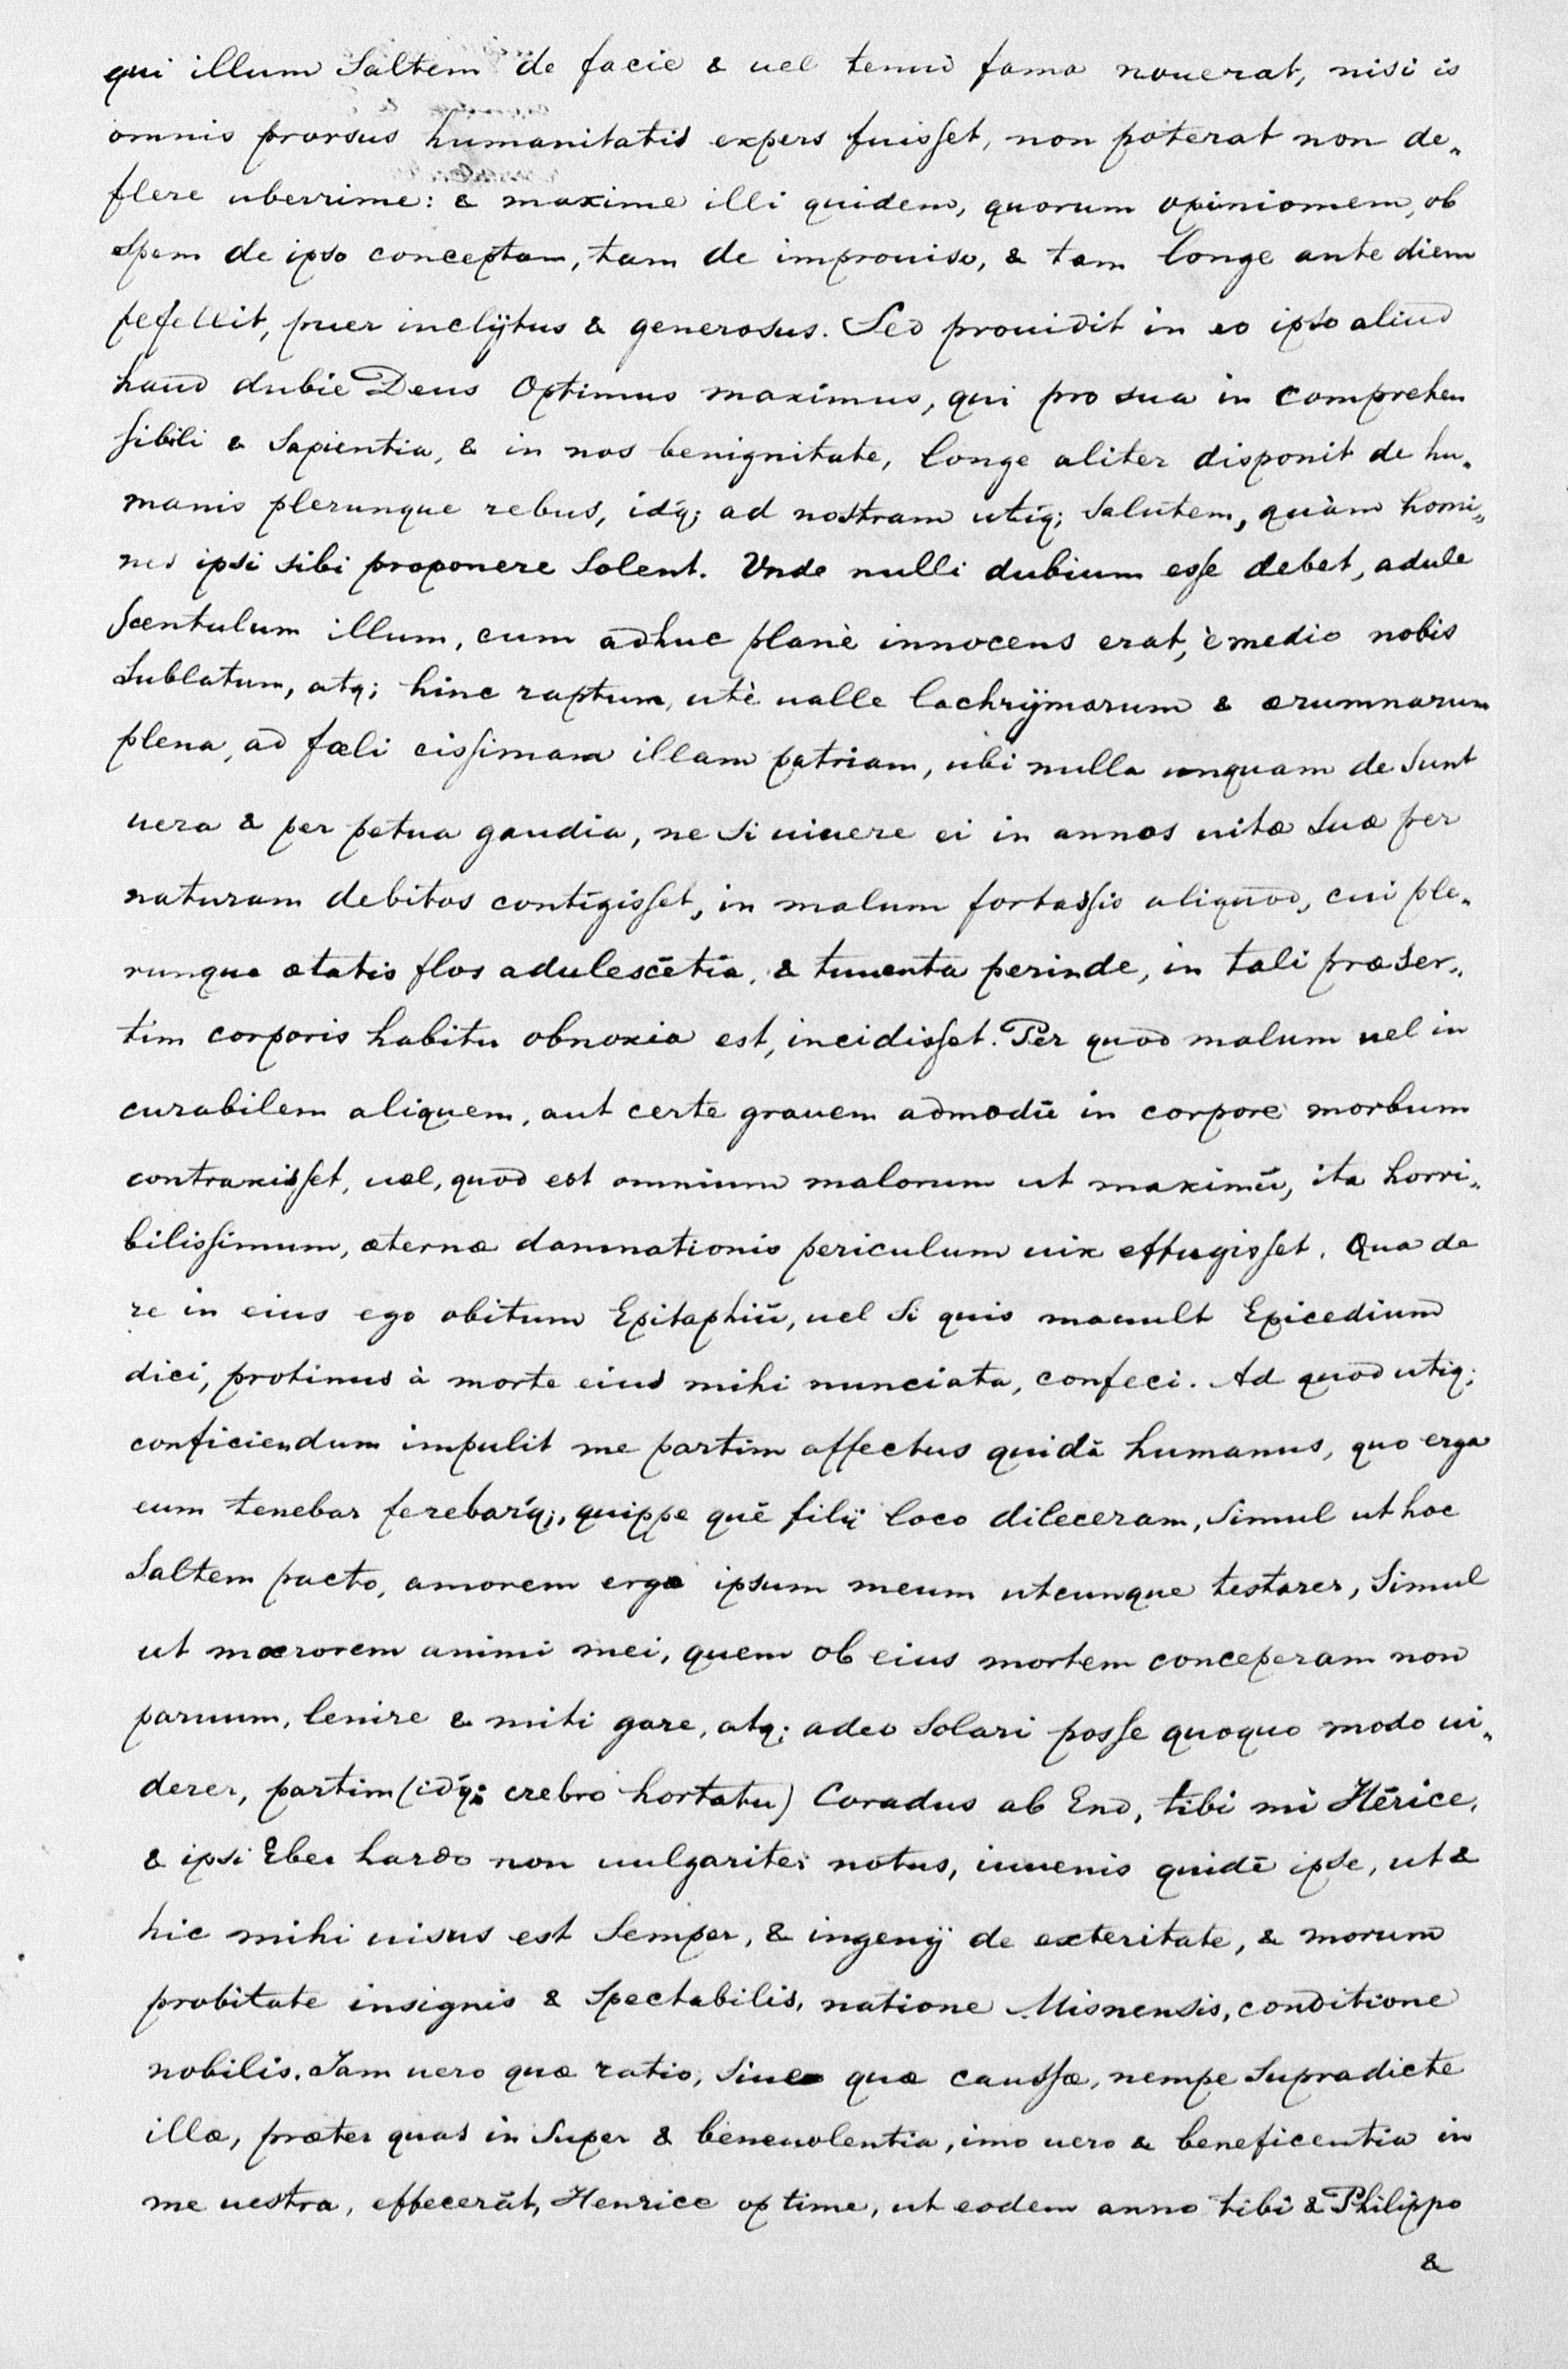 qui illum Saltem de facie & uel tenui fama nouerat, nisi is
omnis prorsus humanitatis expers fuisset, non poterat non de„
flere uberrime: & maxime illi quidem, quorum opiniomem, ob
Spem de ipso conceptam, tam de improuiso, & tam longe ante diem
fefellit, puer inclÿtus & generosus. Sed prouidit in eo ipso aliud
haud dubie Deus Optimus maximus, qui pro sua in comprehen
sibili & Sapientia, & in nos benignitate, longe aliter disponit de hu„
manis plerunque rebus, idq́; ad nostram utiq; Salutem, quàm homi„
nes ipsi sibi proponere Solent. Vnde nulli dubium esse debet, adule
Scentulum illum, cum adhuc planè innocens erat, è medio nobis
Sublatum, atq; hinc raptum, utè ualle lachrÿmarum & ærumnarum
plena, ad fæli cissimam illam patriam, ubi nulla unquam de Sunt
uera & per petua gaudia, ne Si uiuere ei in annos uitæ Suæ per
naturam debitos contigisset, in malum fortassis aliquod, cui ple„
runque ætatis flos adulescētia, & iuuenta perinde, in tali præser„
tim corporis habitu obnoxia est, incidisset. Per quod malum uel in
curabilem aliquem, aut certe grauem admodū in corpore morbum
contraxisset, uel, quod est omnium malorum ut maximū, ita horri„
bilissimum, æternæ damnationis periculum uix effugisset. Qua de
re in eius ego obitum Epitaphiū, uel Si quis mauult Epicedium
dici, protinus à morte eius mihi nunciata, confeci. Ad quod utiq;
conficiendum impulit me partim affectus quidā humanus, quo erga
eum tenebar ferebarq́;, quippe quē filÿ loco dilexeram, Simul ut hoc
Saltem pacto, amorem erga ipsum meum utcunque testarer, Simul
ut mærorem animi mei, quem ob eius mortem conceperam non
paruum, lenire & miti gare, atq; adeo Solari posse quoquo modo ui„
derer, partim (idq́; crebro hortatu) Coradus ab End, tibi mi Hērice,
& ipsi Eber hardo non uulgariter notus, iuuenis quidē ipse, ut &
hic mihi uisus est Semper, & ingenÿ de exteritate, & morum
probitate insignis & Spectabilis, natione Misnensis, conditione
nobilis. Iam uero quæ ratio, Siue quæ caussæ, nempe Supradicte
illæ, præter quas in Super & beneuolentia, imo uero & beneficentia in
me uestra, effecerāt, Henrice op time, ut eodem anno tibi & Philippo
&